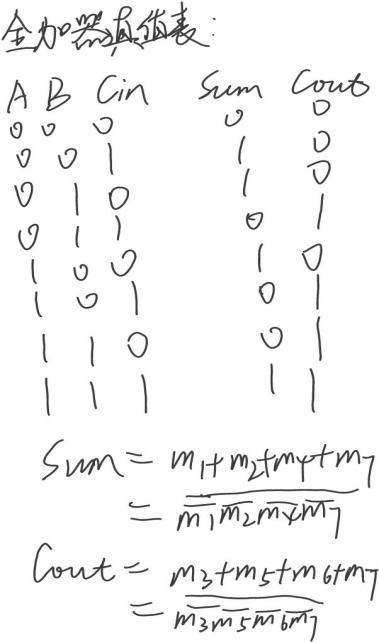 全加器真值表:
A B Cin Sum Cout
0 0 0 0 0
0 0 1 1 0
0 1 0 1 0
0 1 1 0 1
1 0 0 1 0
1 0 1 0 1
1 1 0 0 1
1 1 1 1 1
Sum = m₁+m₂+m₄+m₇
= \overline{\overline{m₁} \overline{m₂} \overline{m₄} \overline{m₇}}
Cout = m₃+m₅+m₆+m₇
= \overline{\overline{m₃} \overline{m₅} \overline{m₆} \overline{m₇}}